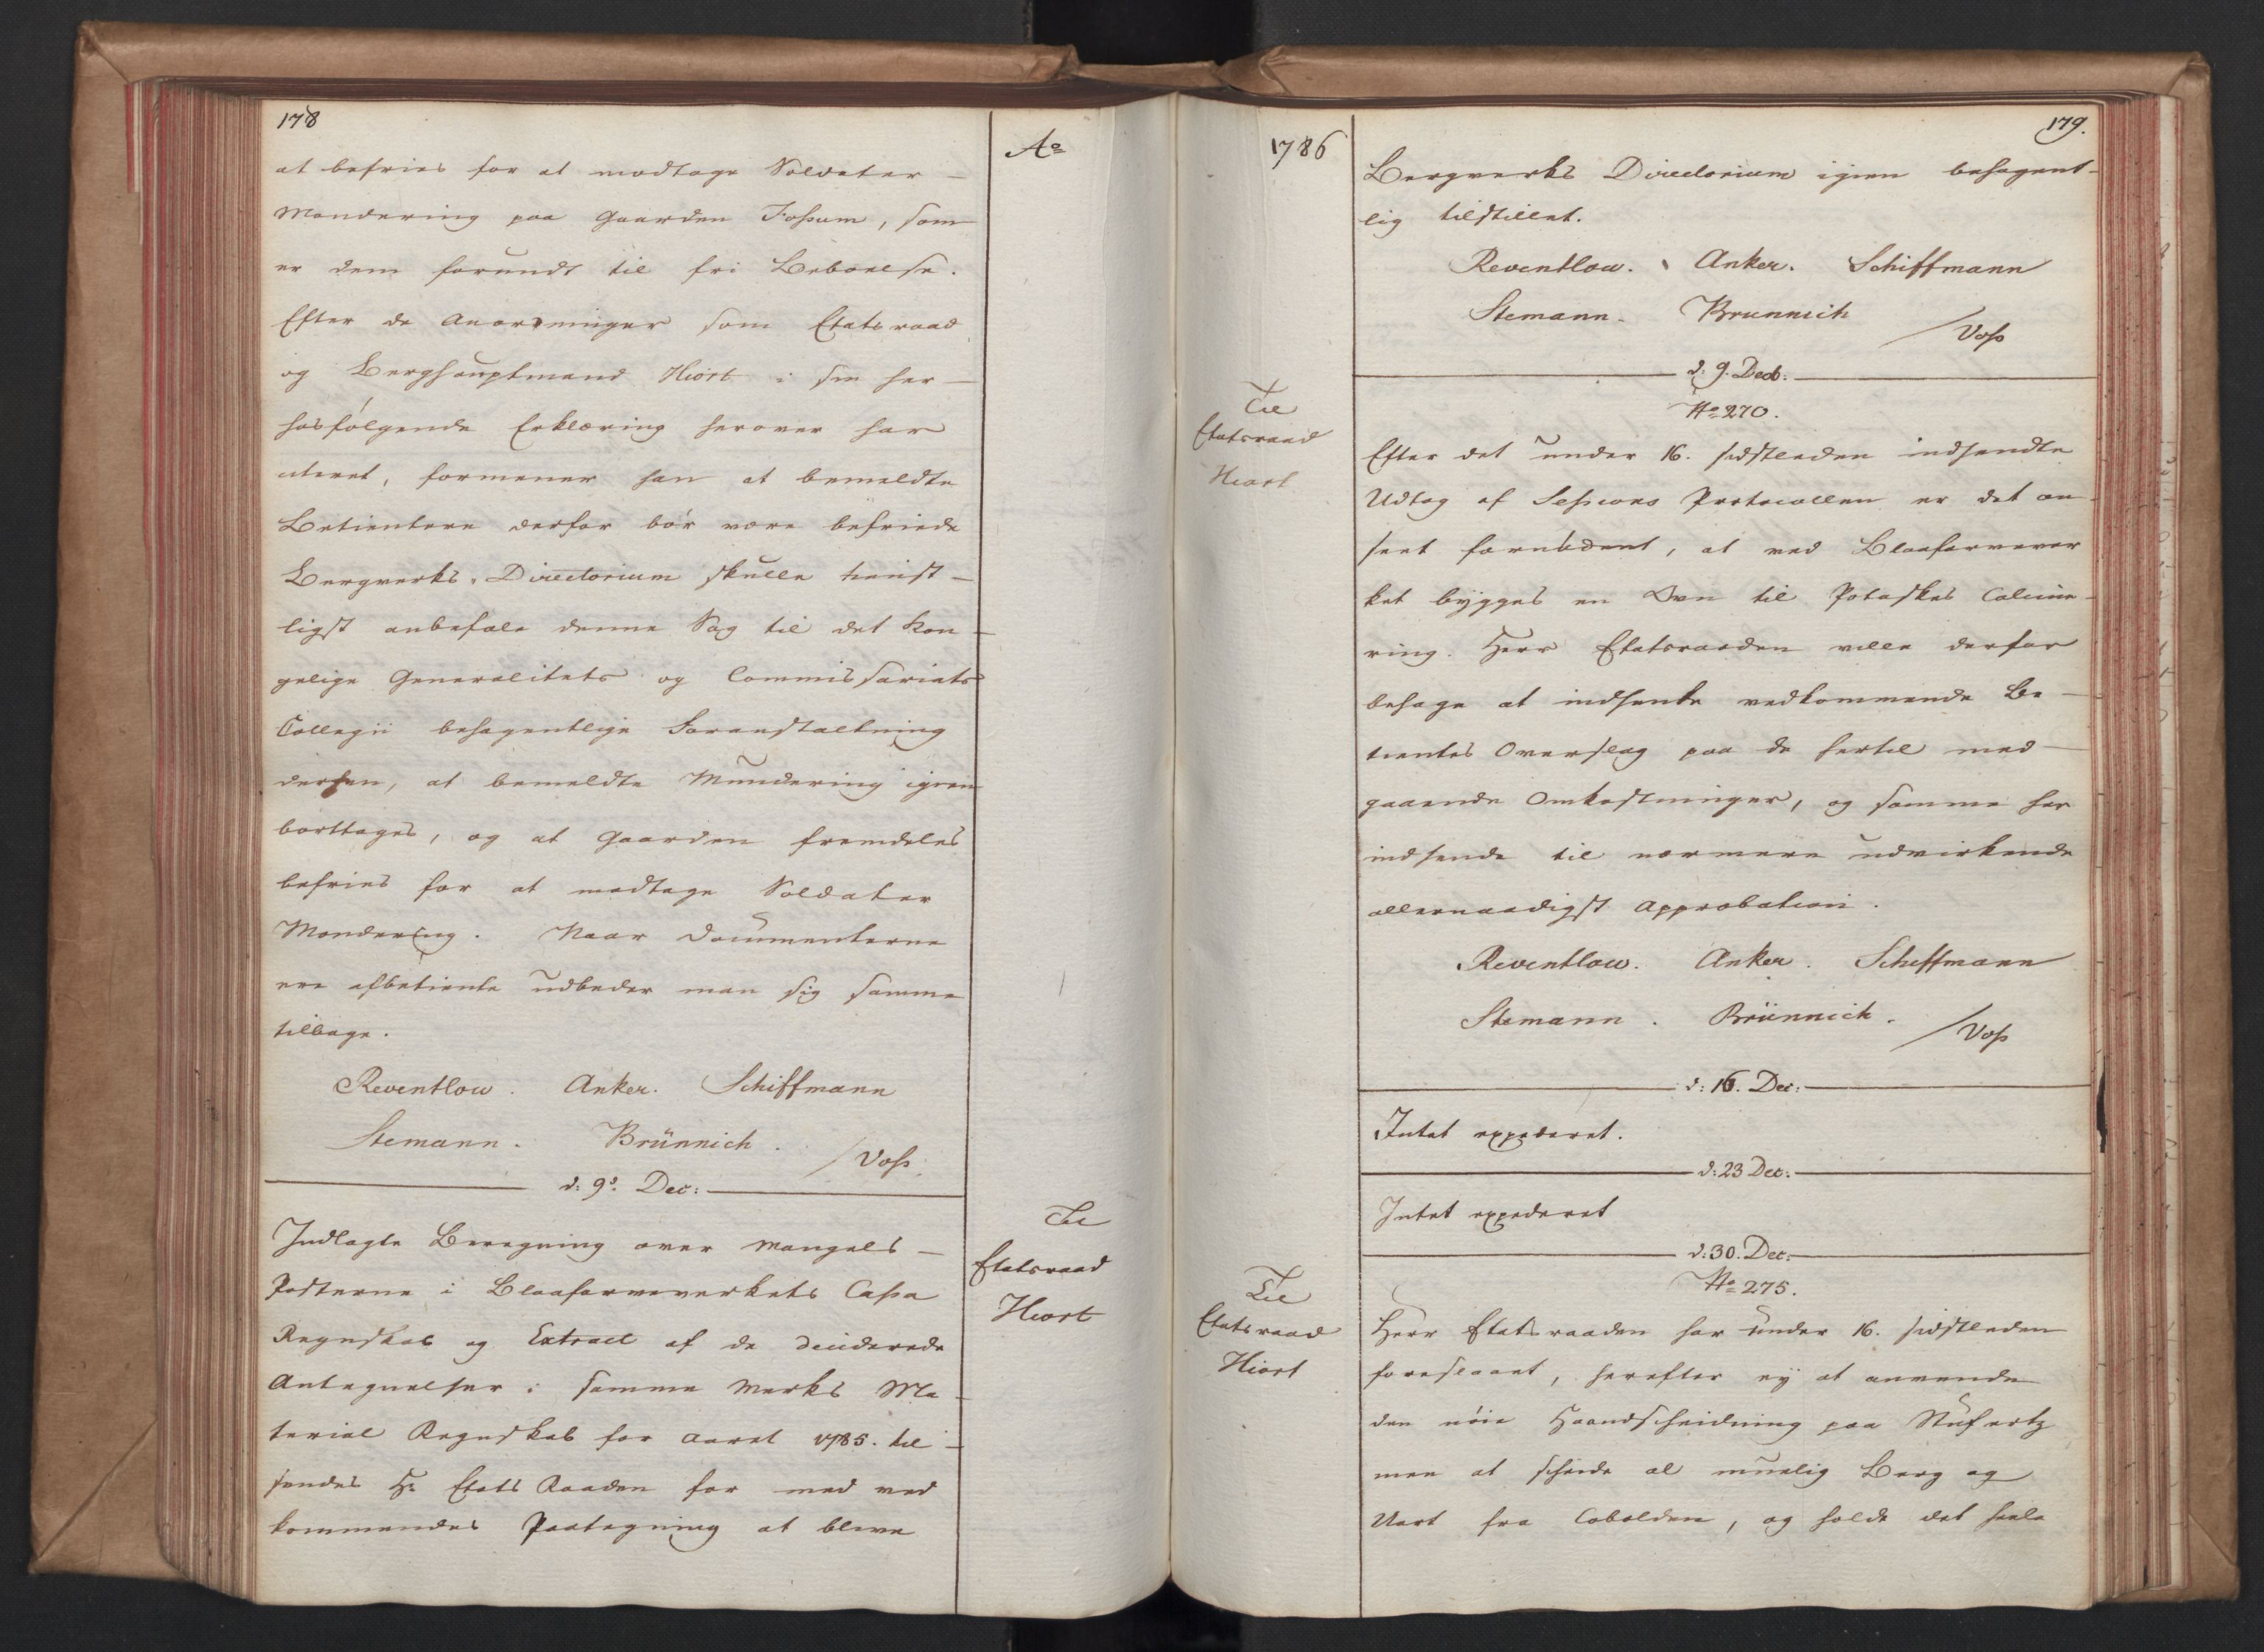 178
Ao
at befries for at modtage Soldater-
Mondering paa Gaarden Foßum, som
er dem forundt til fri Beboelse.
Efter de Anordninger som Etatsraad
og Berghauptmand Hiort i sin her-
hosfølgende Erklæring herover har
citeret, formener han at bemeldte
Betientere derfor bør være befriede
Bergverks-Directorium skulle tienst-
ligst anbefale denne Sag til det Kon-
gelige Generalitets og Commissariats
Collegii behagentlige Foranstaltning
derhen, at bemeldte Mundering igien
borttages, og at Gaarden fremdeles
befries for at modtage Soldater
Mondering. Naar Documenterne
ere afbetiente udbeder man sig samme
tilbage.
Reventlow. Anker. Schiffmann
Stemann. Brünnich.
/Voß.
d: 9d. Dec:
Til
Etatsraad
Hiort
Indlagte Beregning over Mangels-
Posterne i Blaafarveverkets Caßa
Regnskab og Extract af de deciderede
Antegnelser i samme Verks Ma-
terial Regnskab for Aaret 1785. til-
sendes Hr. Etats Raaden for med ved
kommendes Paategning at blive
1786
179.
Bergverks Directorium igien behagent-
lig tilstillet.
Reventlow. Anker. Schiffmann
Stemann. Brunnich
/Voß
d. 9. Decb:
No 270.
Til
Etatsraad
Hiort
Efter det under 16. sidstleden indsendte
Udtog af Seßions Protocollen er det an-
seet fornødent, at ved Blaafarvever
ket bygges en Ovn til Potaskes Calcine-
ring. Herr Etatsraaden ville derfor
behage at indhente vedkommende Be-
tientes Overslag paa de hertil med-
gaaende Omkostninger, og samme her
indsende til nærmere udvirkende
allernaadigst Approbation.
Reventlow. Anker. Schiffmann
Stemann. Brünnich.
/Voß
d: 16. Dec:
Intet expederet.
d: 23 Dec:
Intet expederet
d: 30. Dec:
No 275.
Til
Etatsraad
Hiort
Herr Etatsraaden har under 16. sidstleden
foreslaaet, herefter ey at anvende
den nøie Haandscheidning paa Stufertz
men at scheide al muelig Berg og
Uart fra Cobolden, og holde det heele